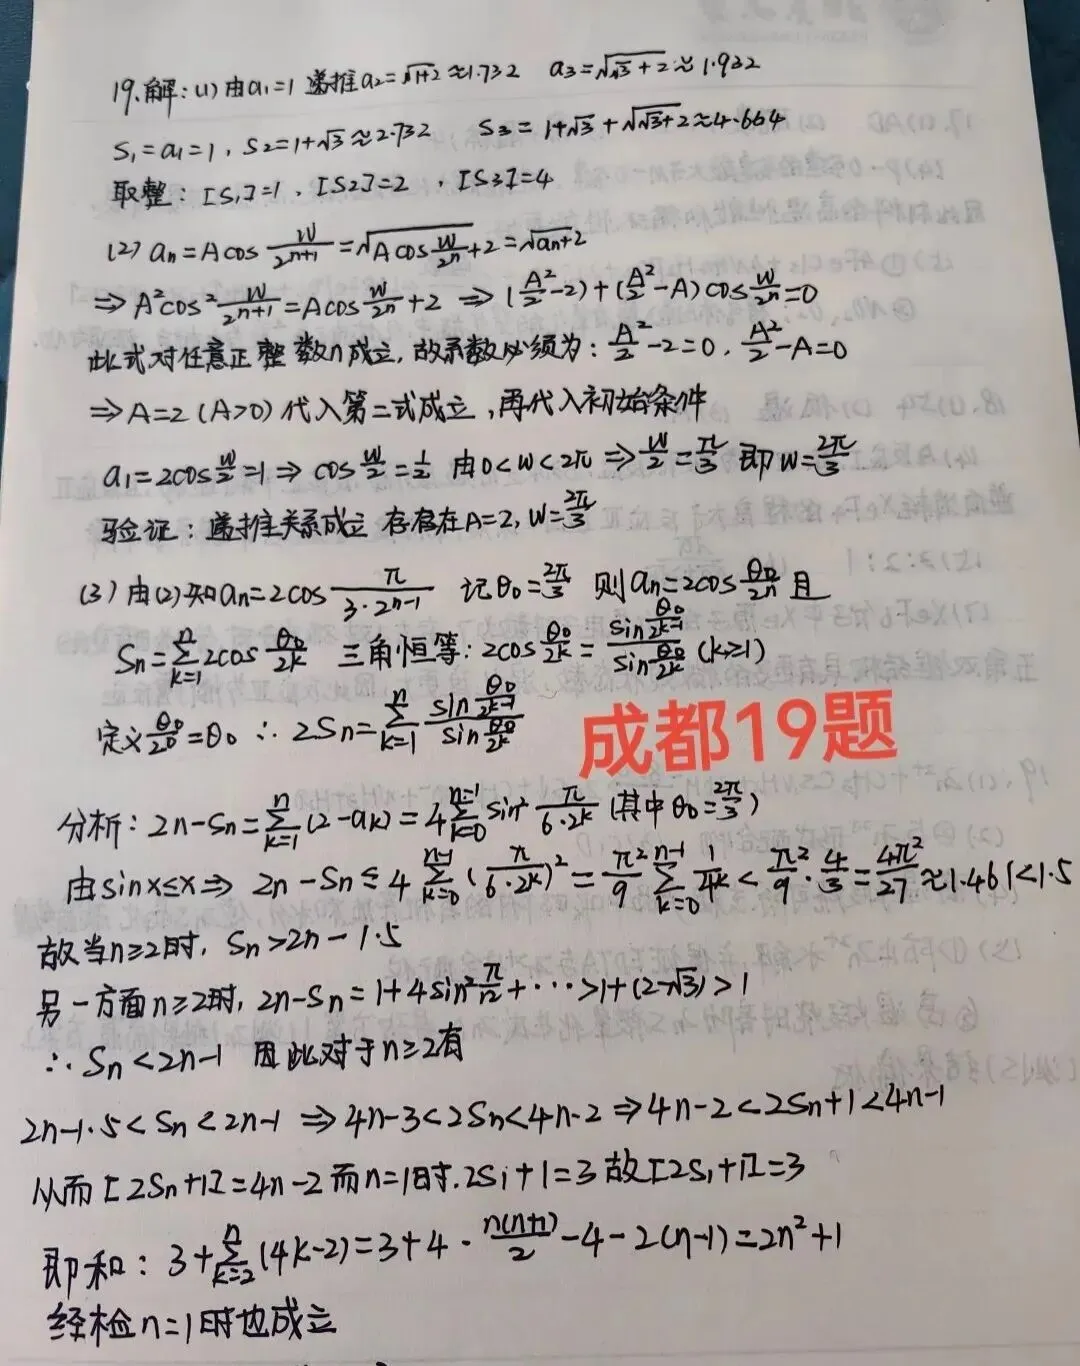 19.解:(1)由a₁=1 递推a₂=√1+2≈1.732 a₃=√√3+2≈1.932
S₁=a₁=1,S₂=1+√3≈2.732 S₃=1+√3+√√3+2≈4.664
取整:[S₁]=1、[S₂]=2,[S₃]=4
(2) aₙ=Acos W/2ⁿ⁺¹=√Acos W/2ⁿ+2=√aₙ+2
⇒A²cos² W/2ⁿ⁺¹=Acos W/2ⁿ+2 ⇒(A²/2-2)+(A²/2-A)cos W/2ⁿ=0
此式对任意正整数n成立,故系数必须为:A²/2-2=0、A²/2-A=0
⇒A=2(A>0)代入第二式成立,再代入初始条件
a₁=2cos W/2=1⇒cos W/2=1/2 由0<W<2π⇒W/2=π/3 即W=2π/3
验证:递推关系成立 存在A=2,W=2π/3
(3)由(2)知aₙ=2cos π/3·2ⁿ⁻¹ 记θ₀=2π/3 则aₙ=2cos θ₀/2ⁿ且
Sₙ=∑ⁿₖ₌₁2cos θ₀/2ᵏ 三角恒等:2cos θ₀/2ᵏ=sin θ₀/2ᵏ⁻¹/sin θ₀/2ᵏ(k≥1)
定义θ₀/2⁰=θ₀ ∴2Sₙ=∑ⁿₖ₌₁ sin θ₀/2ᵏ⁻¹/sin θ₀/2ᵏ
成都19题
分析:2n-Sₙ=∑ⁿₖ₌₁(2-aₖ)=4∑ⁿ⁻¹ₖ₌₀sin² π/6·2ᵏ(其中θ₀=2π/3)
由sinx≤x⇒2n-Sₙ≤4∑ⁿ⁻¹ₖ₌₀(π/6·2ᵏ)²=π²/9∑ⁿ⁻¹ₖ₌₀1/4ᵏ<π²/9·4/3=4π²/27≈1.461<1.5
故当n≥2时,Sₙ>2n-1.5
另一方面n≥2时,2n-Sₙ=1+4sin² π/12+···>1+(2-√3)>1
∴Sₙ<2n-1 因此对于n≥2有
2n-1.5<Sₙ<2n-1⇒4n-3<2Sₙ<4n-2⇒4n-2<2Sₙ+1<4n-1
从而[2Sₙ+1]=4n-2而n=1时.2S₁+1=3故[2S₁+1]=3
即和:3+∑ⁿₖ₌₂(4k-2)=3+4·n(n+1)/2-4-2(n-1)=2n²+1
经检n=1时也成立